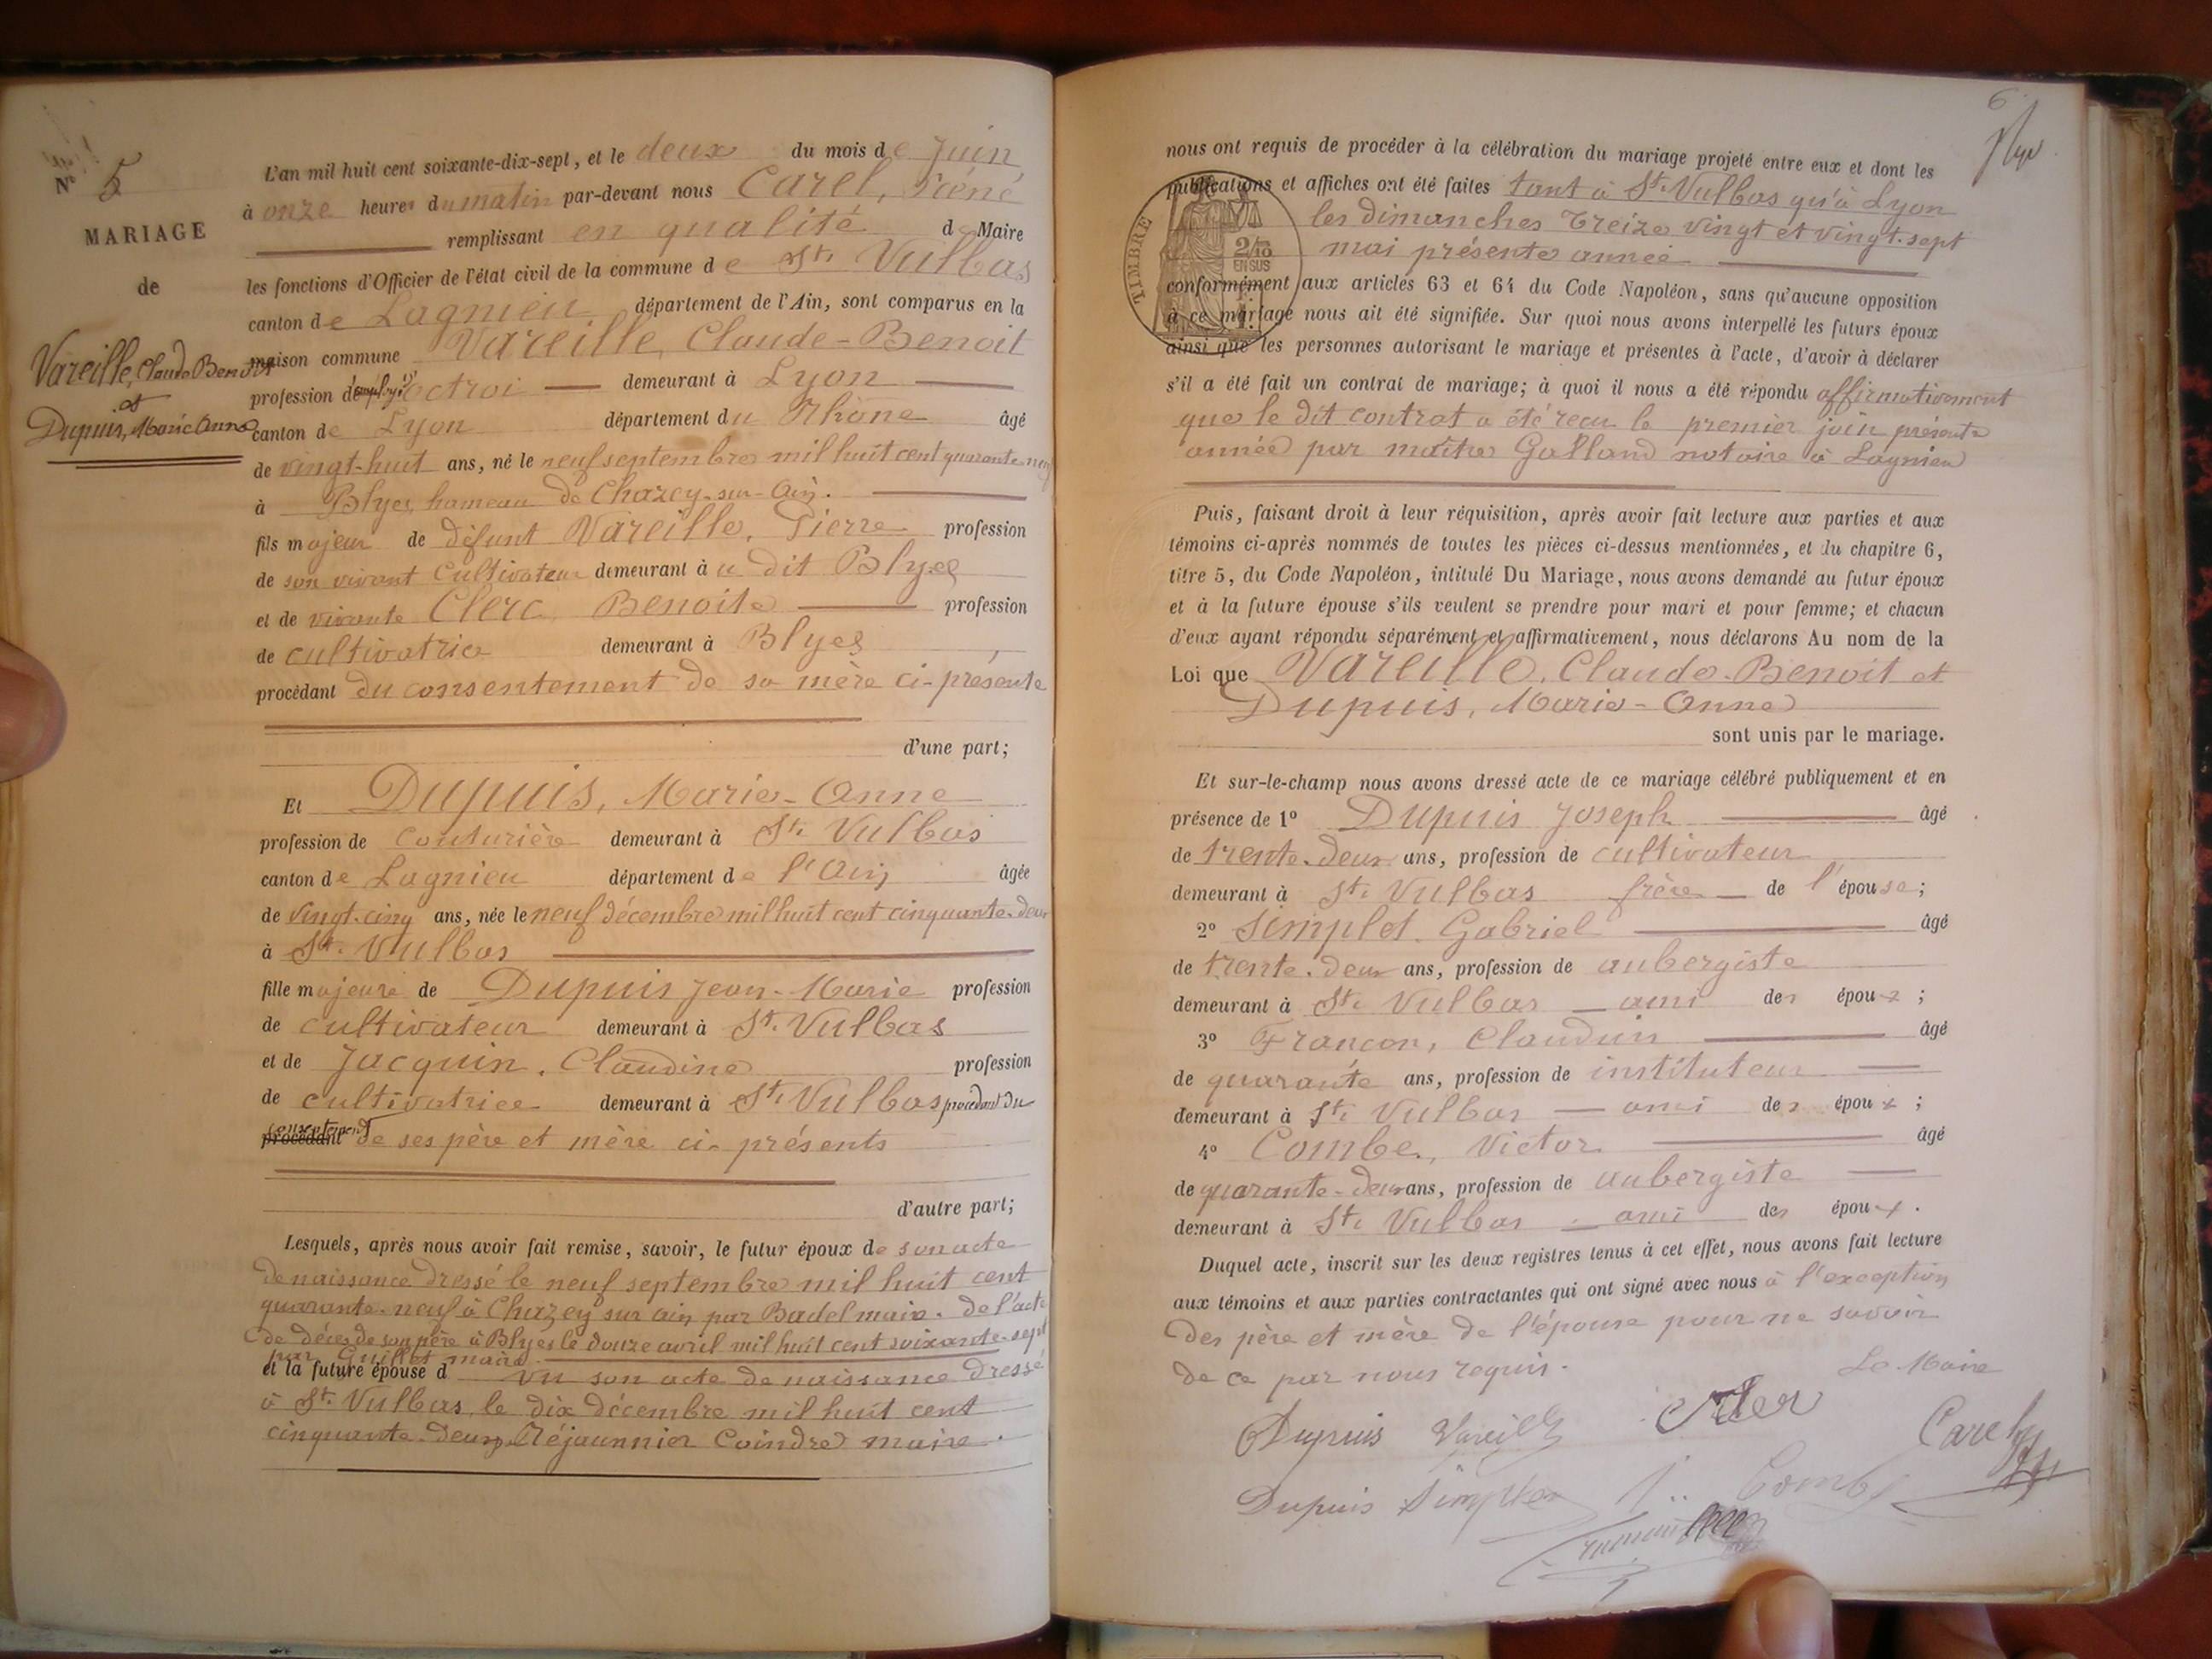 Nº 5
MARIAGE
de
Vareille, Claude Benoit
et
Dupuis, Marie Anne
L'an mil huit cent soixante-dix-sept, et le deux du mois de Juin
à onze heures du matin par-devant nous Carel, Réné
remplissant en qualité de Maire
les fonctions d'Officier de l'état civil de la commune de St. Vulbas
canton de Lagnieu département de l'Ain, sont comparus en la
maison commune Vareille, Claude-Benoit
profession d'employé d'octroi demeurant à Lyon
canton de Lyon département du Rhône âgé
de vingt-huit ans, né le neuf septembre mil huit cent quarante-neuf
à Blyes, hameau de Chazey-sur-Ain.
fils majeur de défunt Vareille, Pierre profession
de son vivant cultivateur demeurant à u dit Blyes
et de vivante Clerc Benoite profession
de cultivatrice demeurant à Blyes,
procédant du consentement de sa mère ci-présente
d'une part;
Et Dupuis, Marie-Anne
profession de couturière demeurant à St. Vulbas
canton de Lagnieu département de l'Ain âgée
de vingt-cinq ans, née le neuf décembre mil huit cent cinquante-deux
à St. Vulbas
fille majeure de Dupuis Jean-Marie profession
de cultivateur demeurant à St. Vulbas
et de Jacquin, Claudine profession
de cultivatrice demeurant à St. Vulbas procédant du
consentement
procédant de ses père et mère ci-présents
d'autre part;
Lesquels, après nous avoir fait remise, savoir, le futur époux de son acte
de naissance dressé le neuf septembre mil huit cent
quarante-neuf à Chazey sur ain par Badel maire. de l'acte
de décès de son père à Blyes le douze avril mil huit cent soixante-sept
par Guillet maire.
et la future épouse d vu son acte de naissance dressé
à St. Vulbas, le dix décembre mil huit cent
cinquante-deux Coindre maire.
6
nous ont requis de procéder à la célébration du mariage projeté entre eux et dont les
publications et affiches ont été faites tant à St. Vulbas qu'à Lyon
les dimanches treize vingt et vingt-sept
mai présente année
TIMBRE
2/10
EN SUS
conformément aux articles 63 et 64 du Code Napoléon, sans qu'aucune opposition
à ce mariage nous ait été signifiée. Sur quoi nous avons interpellé les futurs époux
ainsi que les personnes autorisant le mariage et présentes à l'acte, d'avoir à déclarer
s'il a été fait un contrat de mariage; à quoi il nous a été répondu affirmativement
que le dit contrat a été reçu le premier juin présente
année par maître Galland notaire à Lagnieu
Puis, faisant droit à leur réquisition, après avoir fait lecture aux parties et aux
témoins ci-après nommés de toutes les pièces ci-dessus mentionnées, et du chapitre 6,
titre 5, du Code Napoléon, intitulé Du Mariage, nous avons demandé au futur époux
et à la future épouse s'ils veulent se prendre pour mari et pour femme; et chacun
d'eux ayant répondu séparément et affirmativement, nous déclarons Au nom de la
Loi que Vareille, Claude-Benoit et
Dupuis, Marie-Anne
sont unis par le mariage.
Et sur-le-champ nous avons dressé acte de ce mariage célébré publiquement et en
présence de 1º Dupuis Joseph âgé
de trente-deux ans, profession de cultivateur
demeurant à St. Vulbas frère de l'épouse;
2º Simplet, Gabriel âgé
de trente-deux ans, profession de aubergiste
demeurant à St. Vulbas ami des époux;
3º Françon, Claudius âgé
de quarante ans, profession de instituteur
demeurant à St. Vulbas ami des époux;
4º Combe, Victor âgé
de quarante-deux ans, profession de aubergiste
demeurant à St. Vulbas ami des époux.
Duquel acte, inscrit sur les deux registres tenus à cet effet, nous avons fait lecture
aux témoins et aux parties contractantes qui ont signé avec nous à l'exception
des père et mère de l'épouse pour ne savoir
de ce par nous requis.
Le Maire
Dupuis Vareille Carel
Dupuis Simplet Combe